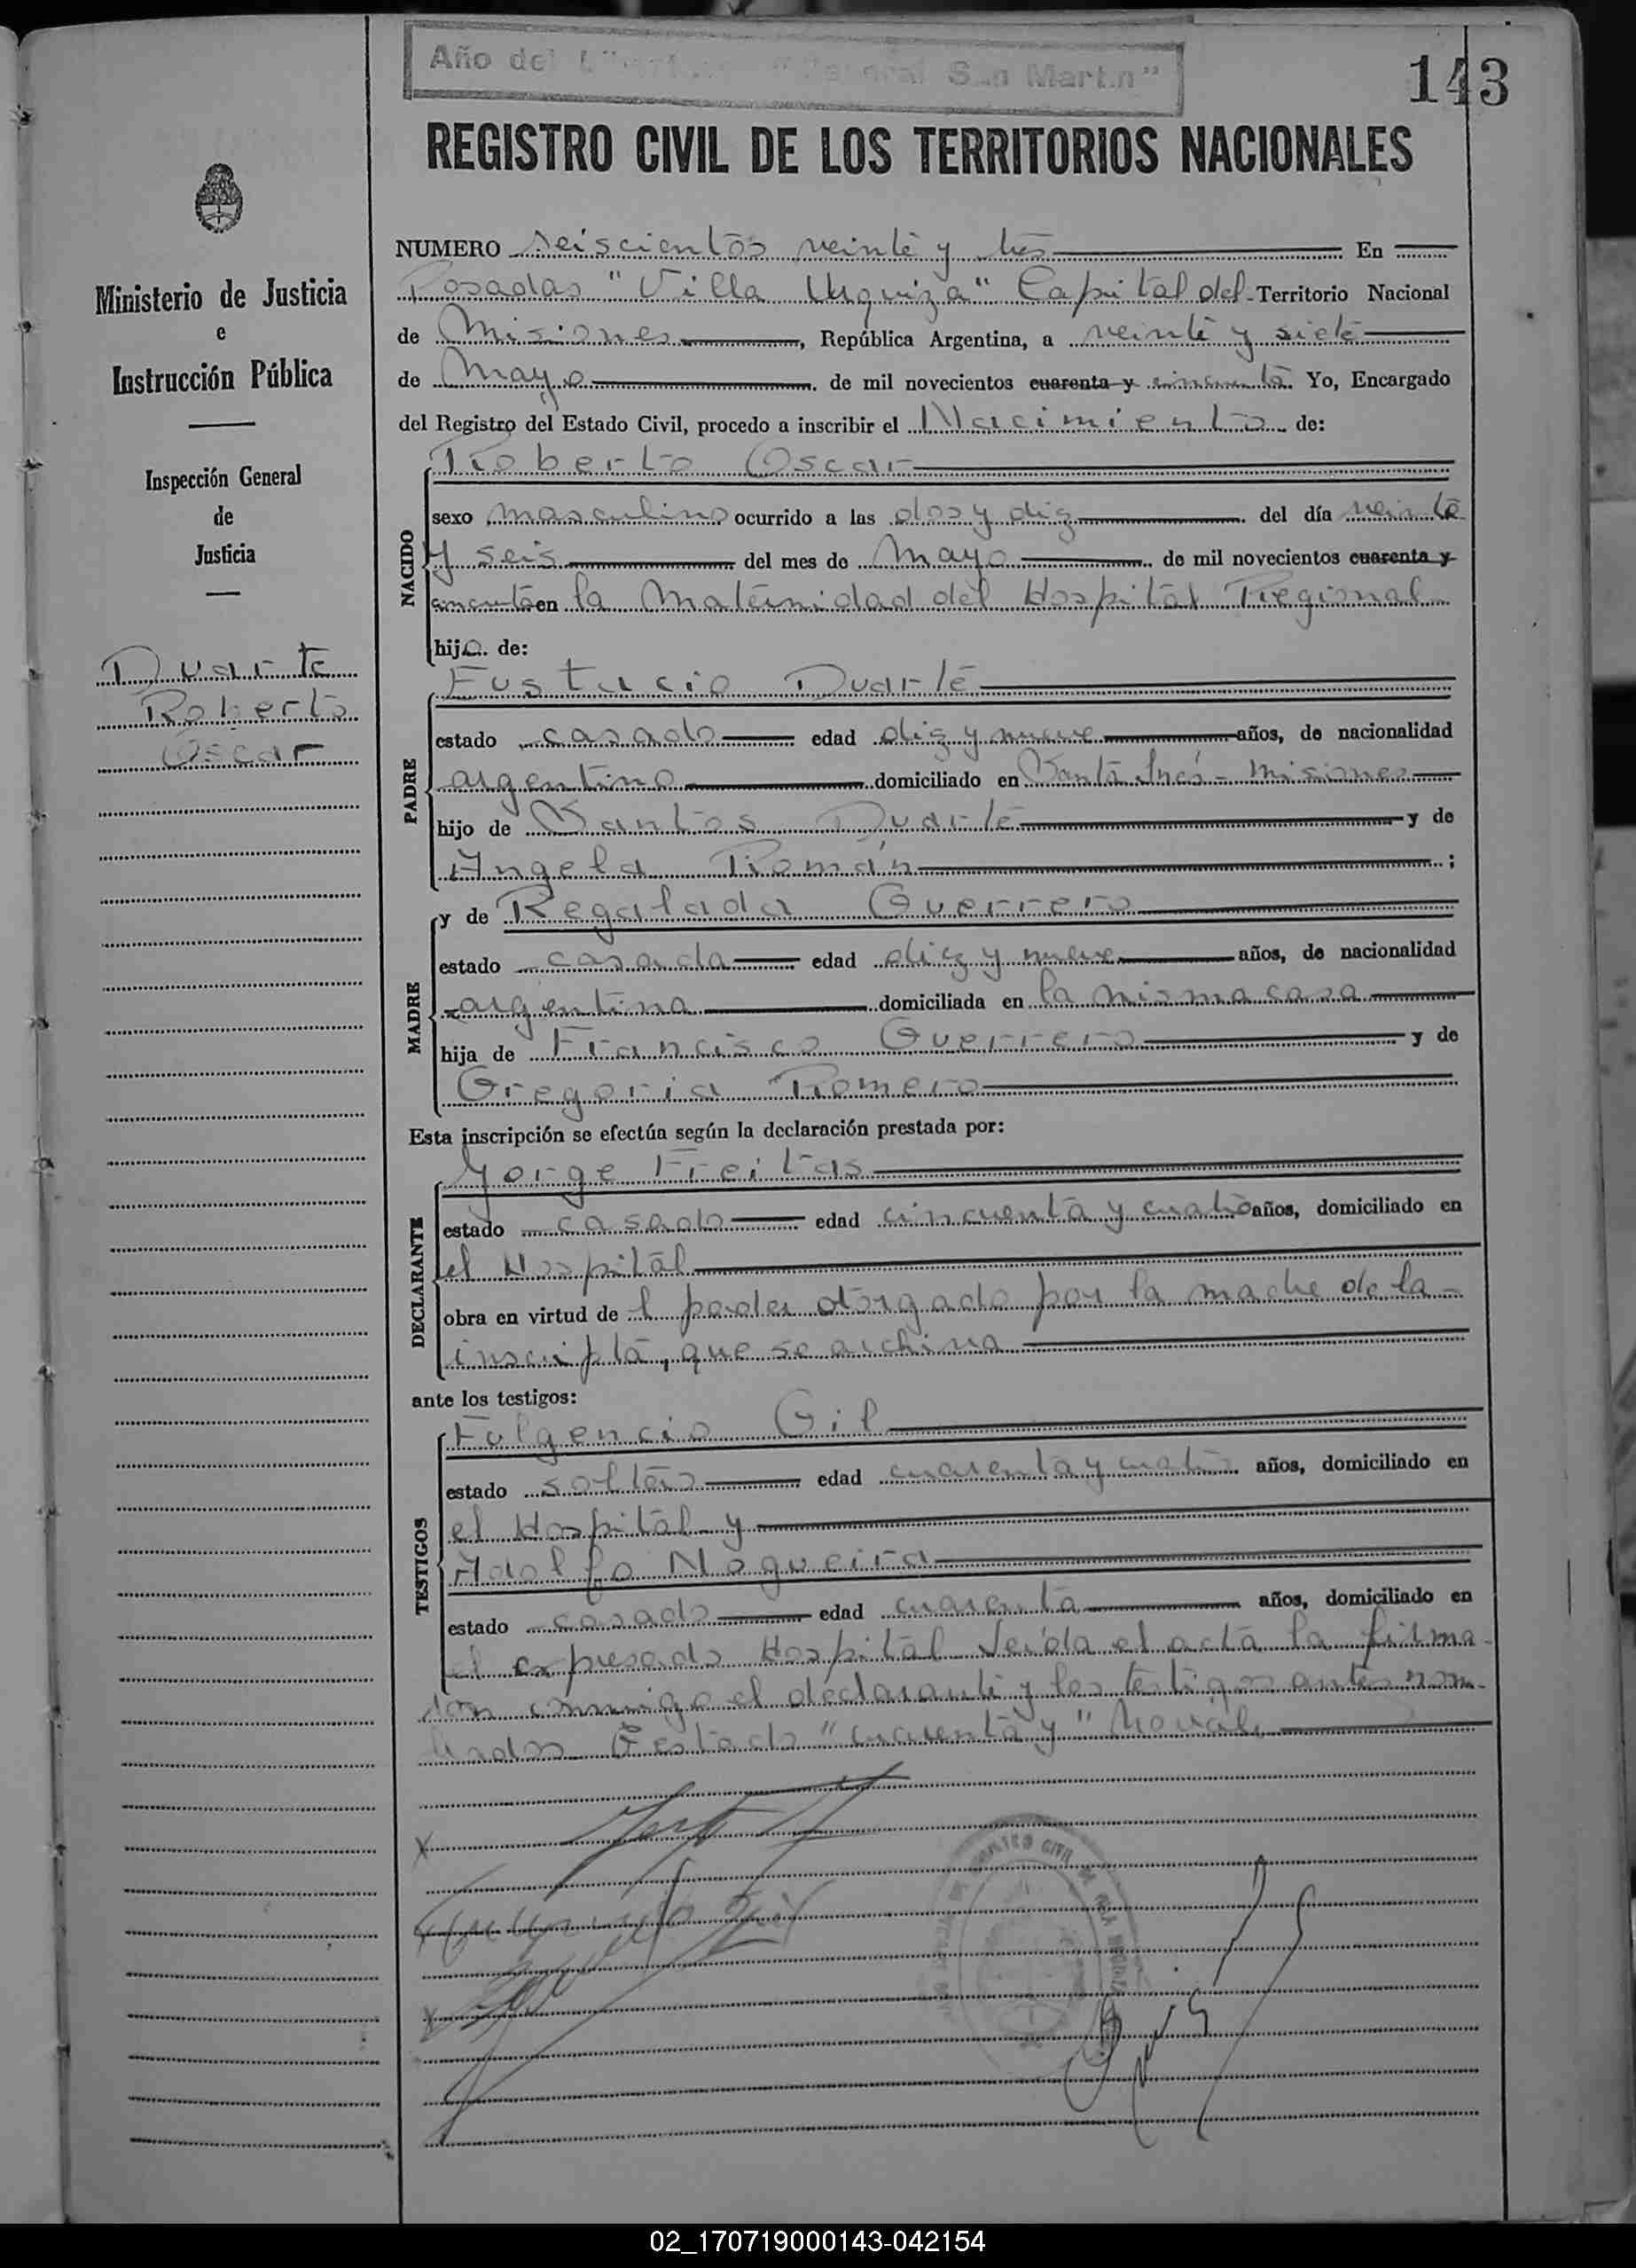 Año del "San Martin"
143
REGISTRO CIVIL DE LOS TERRITORIOS NACIONALES
Ministerio de Justicia
e
Instrucción Pública
Inspección General
de
Justicia
Duarte
Roberto
Oscar
NUMERO seiscientos veinte y tres En
Posadas "Villa Urquiza" Capital del Territorio Nacional
de Misiones, República Argentina, a veinte y siete
de Mayo de mil novecientos cuarenta y cincuenta. Yo, Encargado
del Registro del Estado Civil, procedo a inscribir el Nacimiento de:
NACIDO
Roberto Oscar
sexo masculino ocurrido a las dos y diez del día veinte
y seis del mes de Mayo de mil novecientos cuarenta y
cincuenta en la Maternidad del Hospital Regional
hijo de:
PADRE
Eustacio Duarte
estado casado edad diez y nueve años, de nacionalidad
argentino domiciliado en Santa Inés - Misiones
hijo de Santos Duarte y de
Angela Román;
MADRE
y de Regalada Guerrero
estado casada edad diez y nueve años, de nacionalidad
argentina domiciliada en la misma casa
hija de Francisco Guerrero y de
Gregoria Romero
Esta inscripción se efectúa según la declaración prestada por:
DECLARANTE
Jorge Freitas
estado casado edad cincuenta y cuatro años, domiciliado en
el Hospital
obra en virtud de l poder otorgado por la madre de la
inscripta, que se archiva
ante los testigos:
TESTIGOS
Fulgencio Gil
estado soltero edad cuarenta y cuatro años, domiciliado en
el Hospital y
Adolfo Nogueira
estado casado edad cuarenta años, domiciliado en
el expresado Hospital Leída el acta la firma
ron conmigo el declarante y los testigos antes nom-
brados Testado "cuarenta y" No vale
02_170719000143-042154